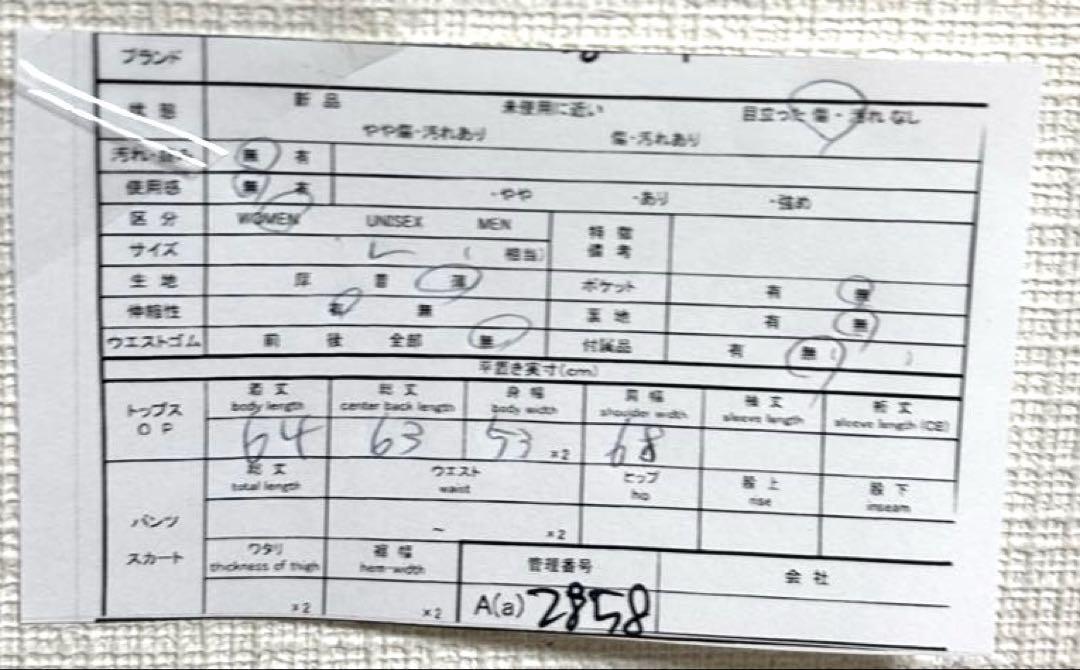 ブランド
状態 新品 未使用に近い 目立った傷・汚れなし
やや傷・汚れあり 傷・汚れあり
汚れ・ 無 有
使用感 無 有 ・やや ・あり ・強め
区分 WOMEN UNISEX MEN 特徴
備考
サイズ L ( 相当)
生地 厚 普 薄 ポケット 有 無
伸縮性 有 無 裏地 有 無
ウエストゴム 前 後 全部 無 付属品 有 無 ( )
平置き実寸(cm)
トップス
OP
着丈 総丈 身幅 肩幅 袖丈 裄丈
body length center back length body width shoulder width sleeve length sleeve length (CB)
64 63 53 ×2 68
総丈 ウエスト ヒップ 股上 股下
total length waist hip rise inseam
パンツ
スカート
~ ×2
ワタリ 裾幅 管理番号 会社
thickness of thigh hem width
×2 ×2 A(a) 2858